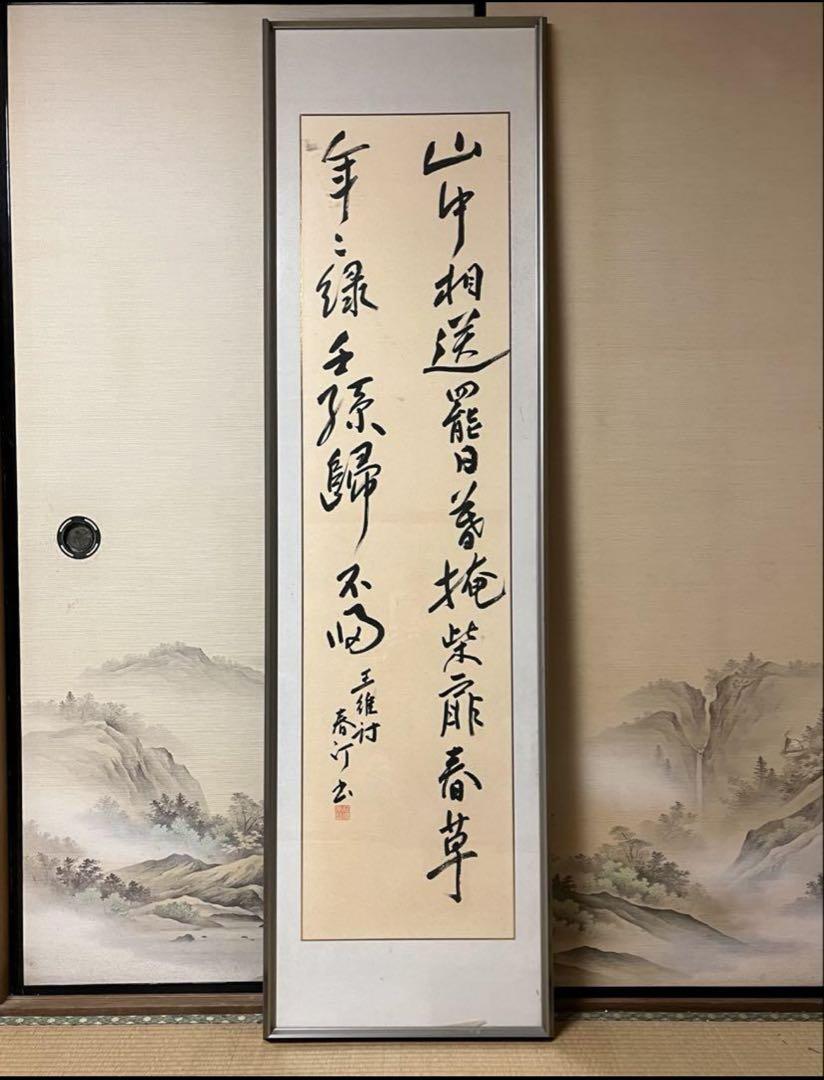 山中相送罷日暮掩柴扉春草
年〻緑王孫歸不帰
王維詩
春汀書